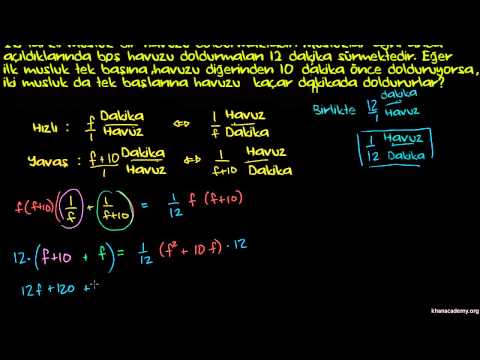 açıldıklarında boş havuzu doldurmaları 12 dakika sürmektedir. Eğer
ilk musluk tek başına havuzu diğerinden 10 dakika önce dolduruyorsa,
iki musluk da tek başlarına havuzu kaçar dakikada doldururlar?
Birlikte 12/1 dakika/Havuz
1/12 Havuz/Dakika
Hızlı : f/1 Dakika/Havuz ⇔ 1/f Havuz/Dakika
Yavaş : f+10/1 Dakika/Havuz ⇔ 1/f+10 Havuz/Dakika
f(f+10)(1/f + 1/f+10) = 1/12 f (f+10)
12·(f+10 + f) = 1/12 (f² + 10f)·12
12f+120 +
khanacademy.org